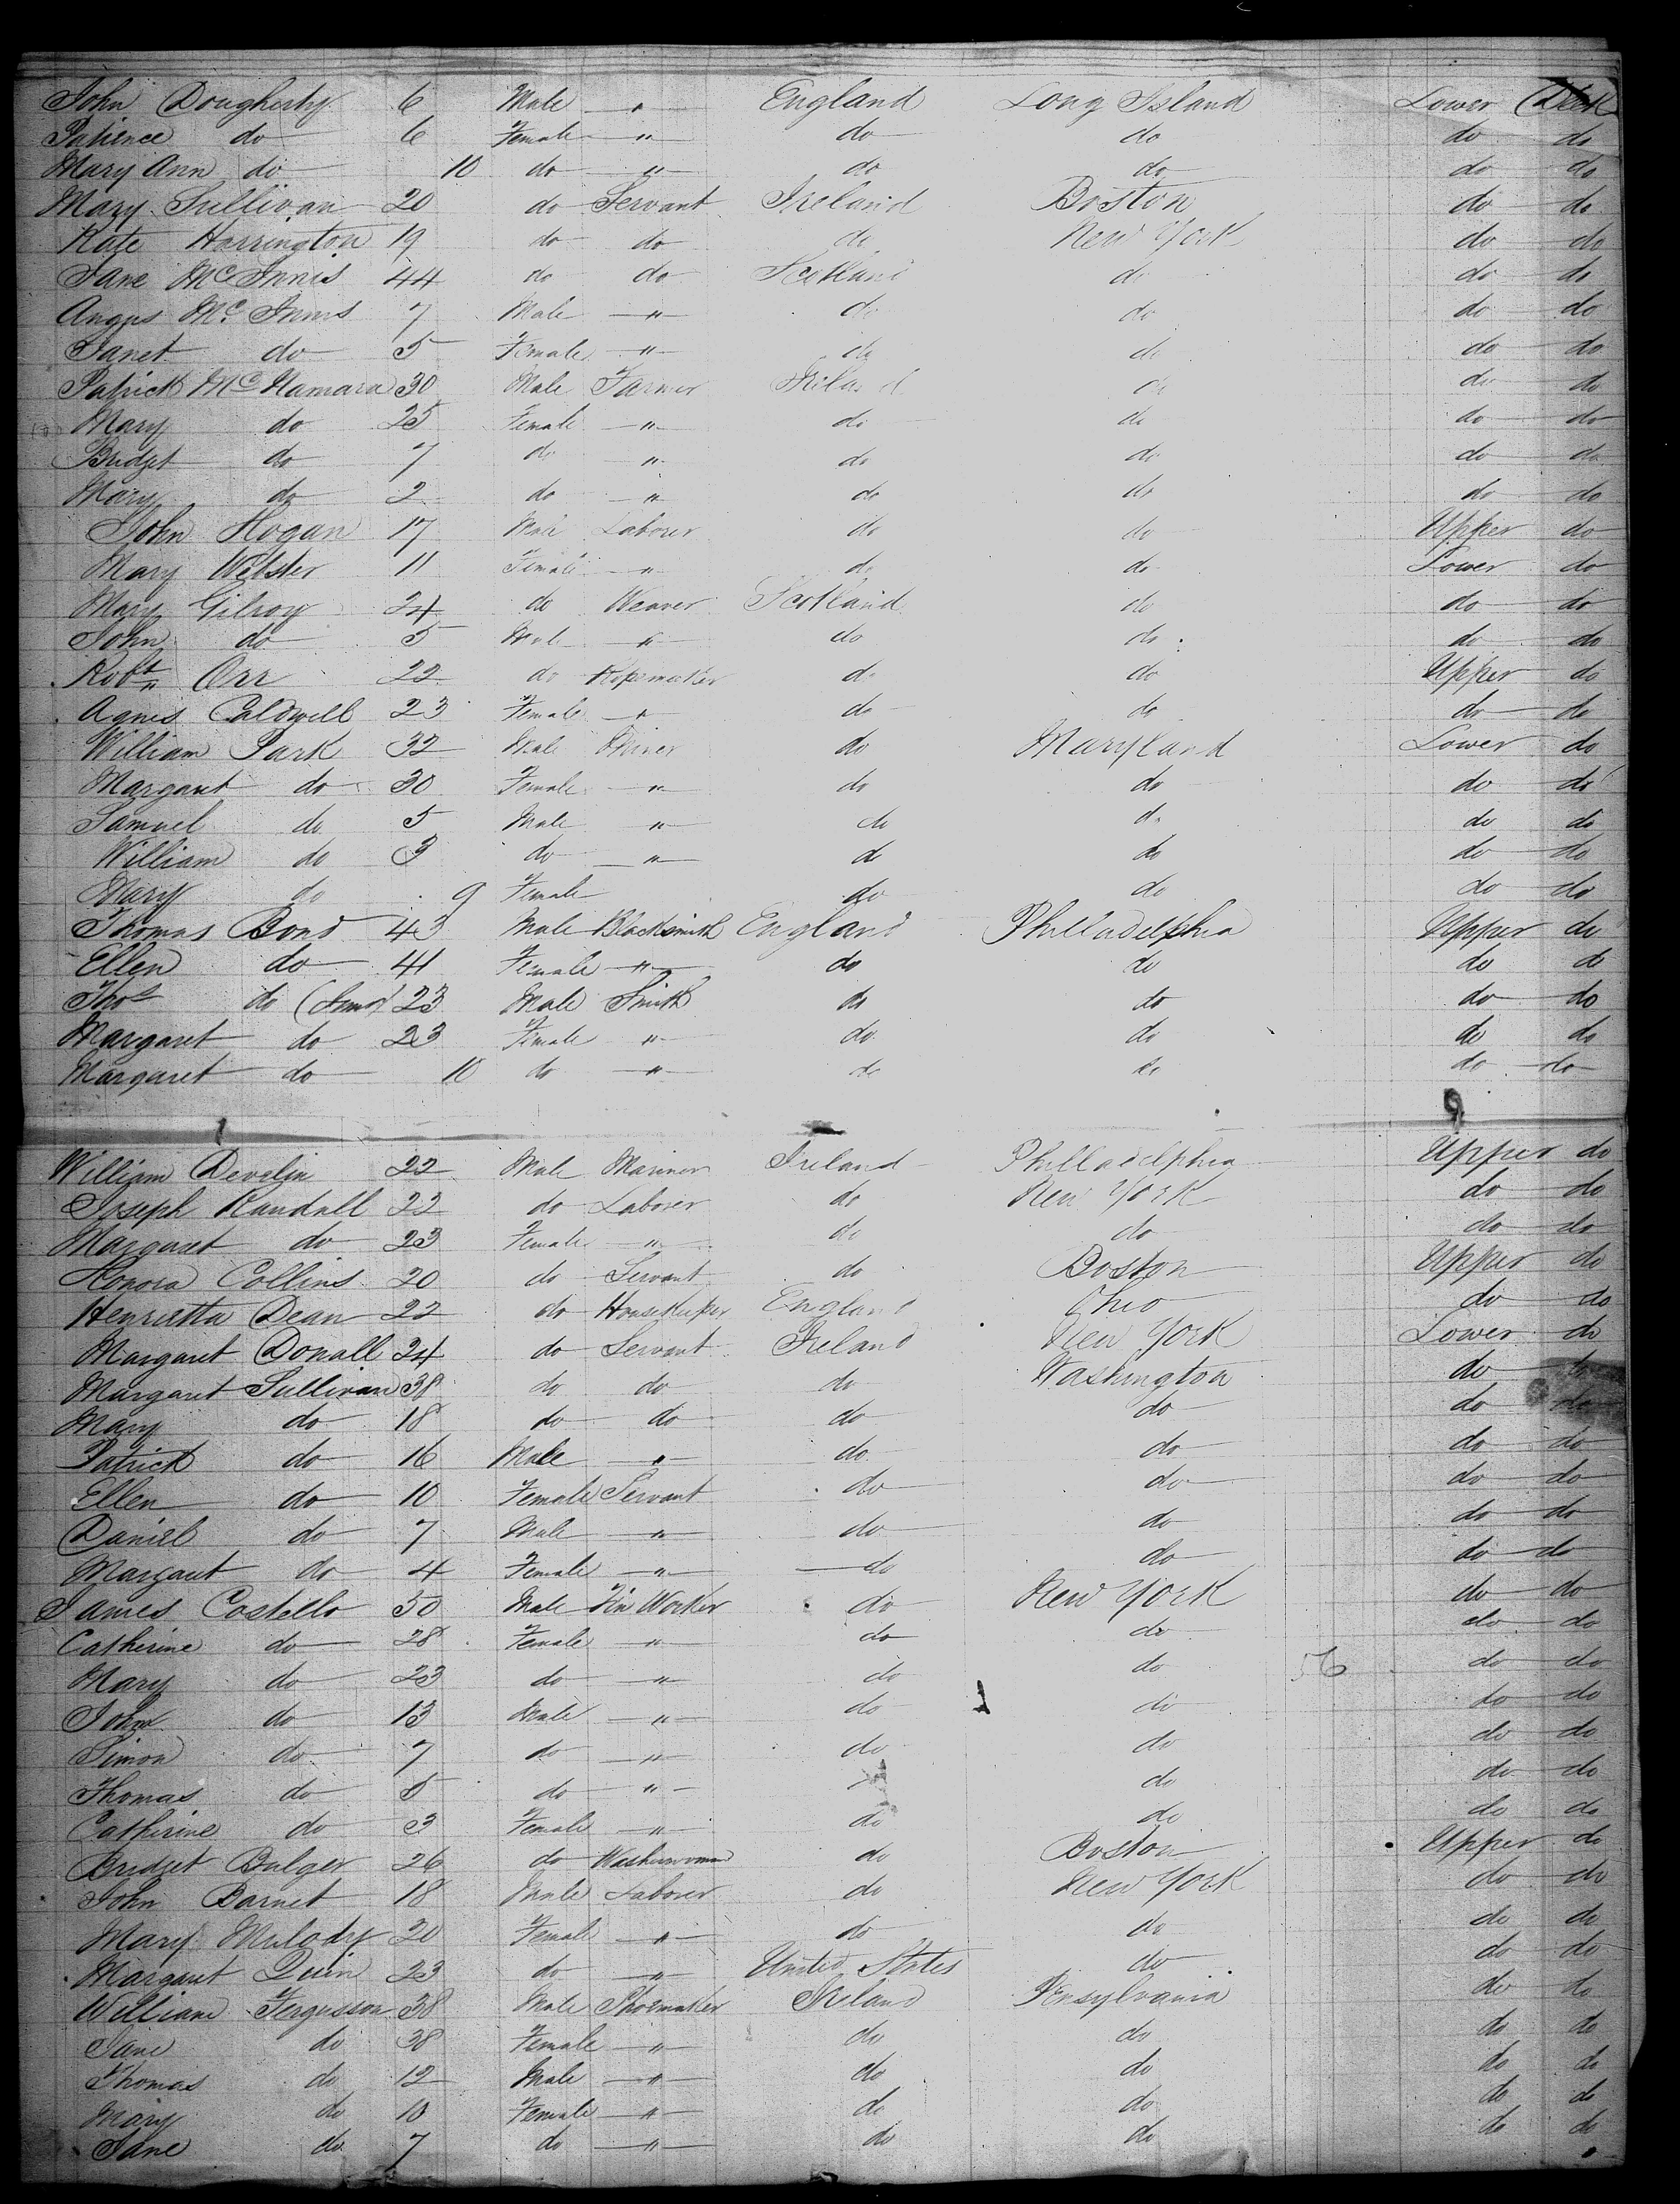 John Dougherty 6 Male " England Long Island Lower Deck
Patience do 6 Female " do do do do
Mary Ann do 10 do " do do do do
Mary Sullivan 20 do Servant Ireland Boston do do
Kate Harrington 19 do do do New York do do
Jane McInnis 44 do do Scotland do do do
Angus Mc Innis 7 Male " do do do do
Janet do 5 Female " do do do do
Patrick McNamara 30 Male Farmer Ireland do do do
Mary do 25 Female " do do do do
Bridget do 7 do " do do do do
Mary do 2 do " do do do do
John Hogan 17 Male Laborer do do Upper do
Mary Webster 11 Female " do do Lower do
Mary Gilroy 24 do Weaver Scotland do do do
John do 5 Male " do do do do
Robt Orr 22 do Ropemaker do do Upper do
Agnes Caldwell 23 Female " do do do do
William Park 32 Male Miner do Maryland Lower do
Margaret do 30 Female " do do do do
Samuel do 5 Male " do do do do
William do 3 do " do do do do
Mary do 9 Female do do do do
Thomas Bond 43 Male Blacksmith England Philladelphia Upper do
Ellen do 41 Female " do do do do
Thos do 23 Male Smith do do do do
Margaret do 23 Female " do do do do
Margaret do 10 do " do do do do
9
William Develin 22 Male Mariner Ireland Philladelphia Upper do
Joseph Randall 22 do Laborer do New York do do
Margaret do 23 Female " do do do do
Honora Collins 20 do Servant do Boston Upper do
Henrietta Dean 22 do Housekeeper England Ohio do do
Margaret Donall 24 do Servant Ireland New York Lower do
Margaret Sullivan 38 do do do Washington do do
Mary do 18 do do do do do do
Patrick do 16 Male " do do do do
Ellen do 10 Female Servant do do do do
Daniel do 7 Male " do do do do
Margaret do 4 Female " do do do do
James Costello 50 Male Tin Worker do New York do do
Catherine do 28 Female " do do do do
Mary do 23 do " do do 56 do do
John do 13 Male " do do do do
Simon do 7 do " do do do do
Thomas do 5 do " do do do
Catherine do 3 Female " do do do do
Bridget Bulger 26 do Washerwoman do Boston Upper do
John Barnet 18 Male Laborer do New York do do
Mary Melody 20 Female " do do do do
Margaret Quin 23 do " United States do do do
William Fergusson 38 Male Shoemaker Ireland Pensylvania do do
Jane do 38 Female " do do do do
Thomas do 12 Male " do do do do
Mary do 10 Female " do do do do
Jane do 7 do " do do do do